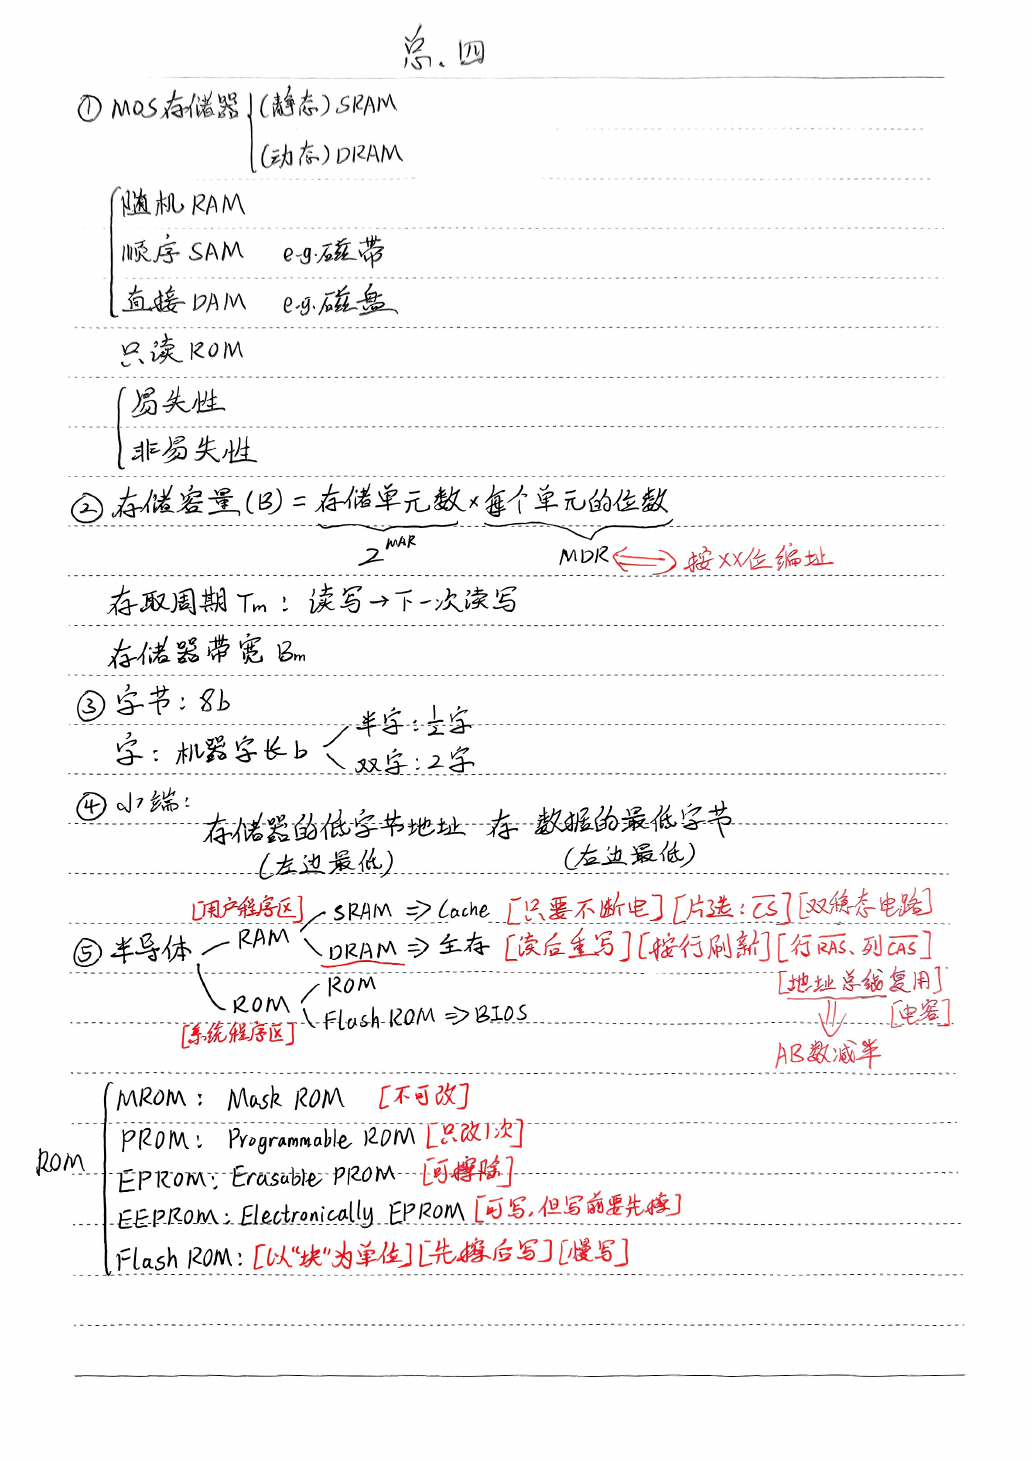 总、四
① MOS存储器 (静态) SRAM
(动态) DRAM
随机 RAM
顺序 SAM e.g.磁带
直接 DAM e.g.磁盘
只读 ROM
易失性
非易失性
② 存储容量(B) = 存储单元数 × 每个单元的位数
2^MAR MDR ⟺ 按XX位编址
存取周期 Tm : 读写→下一次读写
存储器带宽 Bm
③ 字节: 8b
半字: 1/2字
字: 机器字长 b
双字: 2字
④ 小端:
存储器的低字节地址 存 数据的最低字节
(左边最低) (右边最低)
[用户程序区] SRAM ⇒ Cache [只要不断电] [片选: CS] [双稳态电路]
⑤ 半导体 RAM DRAM ⇒ 主存 [读后重写] [按行刷新] [行RAS、列CAS]
ROM [地址总线复用]
ROM Flash ROM ⇒ BIOS [电容]
[系统程序区]
AB数减半
MROM: Mask ROM [不可改]
PROM: Programmable ROM [只改1次]
ROM
EPROM: Erasable PROM [可擦除]
EEPROM: Electronically EPROM [可写,但写前要先擦]
Flash ROM: [以"块"为单位] [先擦后写] [慢写]